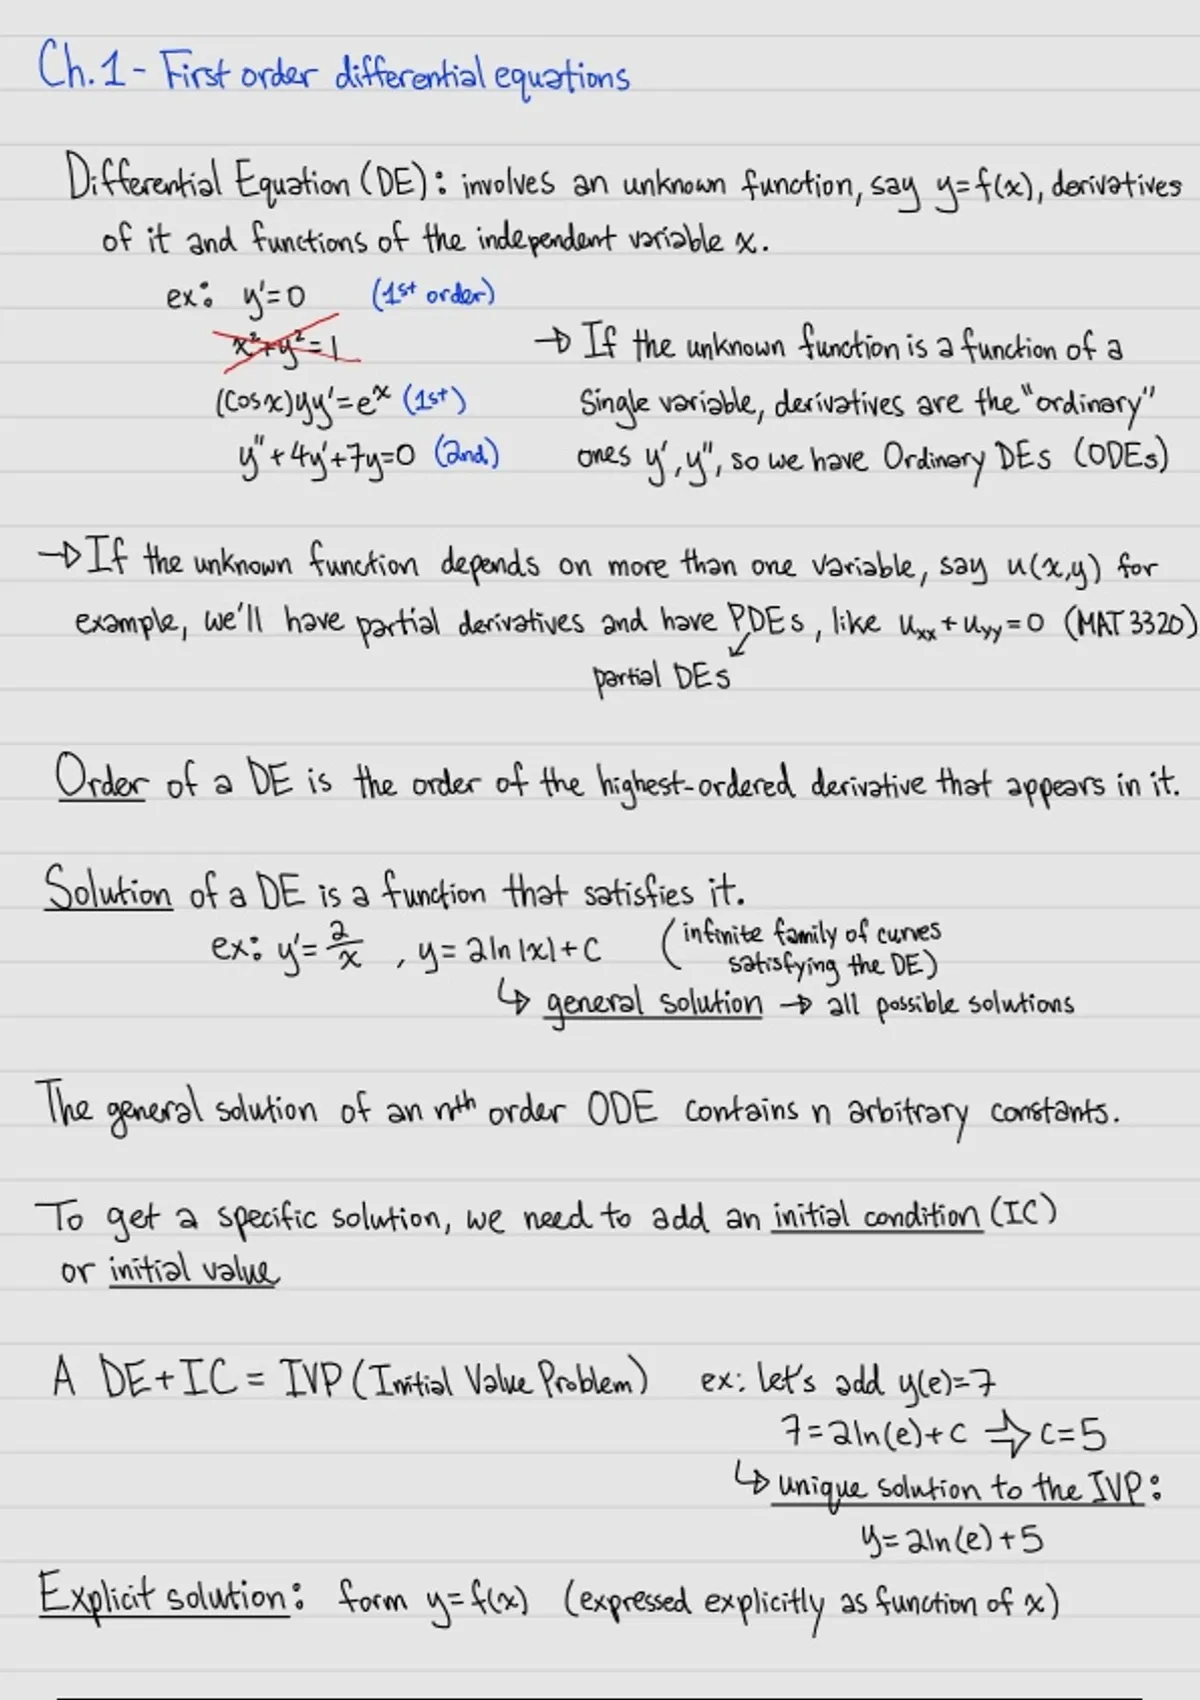 Ch.1 - First order differential equations
Differential Equation (DE): involves an unknown function, say y=f(x), derivatives
of it and functions of the independent variable x.
ex: y'=0 (1st order)
x²+y²=1
→ If the unknown function is a function of a
(cosx)yy'=eˣ (1st)
Single variable, derivatives are the "ordinary"
y"+4y'+7y=0 (2nd)
ones y',y", so we have Ordinary DEs (ODEs)
→ If the unknown function depends on more than one variable, say u(x,y) for
example, we'll have partial derivatives and have PDEs, like uxx+uyy=0 (MAT 3320)
partial DEs
Order of a DE is the order of the highest-ordered derivative that appears in it.
Solution of a DE is a function that satisfies it.
ex: y'=2/x , y=2ln|x|+C (infinite family of curves
satisfying the DE)
↳ general solution → all possible solutions
The general solution of an nth order ODE contains n arbitrary constants.
To get a specific solution, we need to add an initial condition (IC)
or initial value
A DE+IC = IVP (Initial Value Problem) ex: let's add y(e)=7
7=2ln(e)+C ⇒ C=5
↳ unique solution to the IVP:
y=2ln(e)+5
Explicit solution: form y=f(x) (expressed explicitly as function of x)